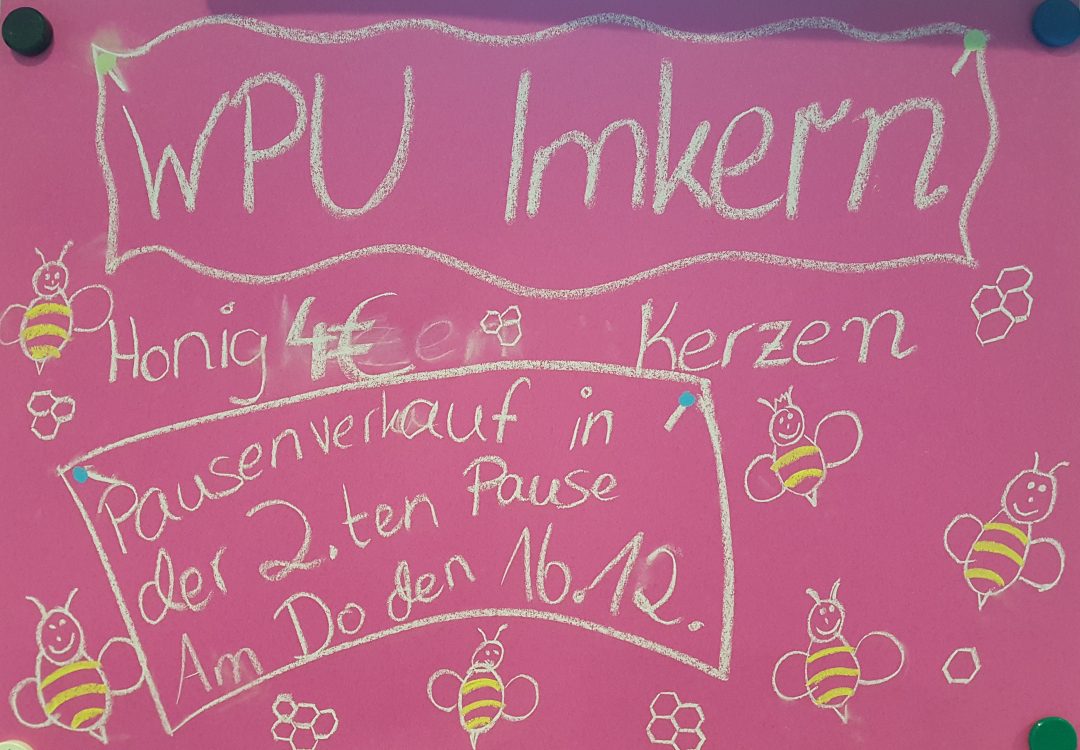 WPU Imkern
Honig 4€ Kerzen
Pausenverkauf in
der 2.ten Pause
Am Do den 16.12.